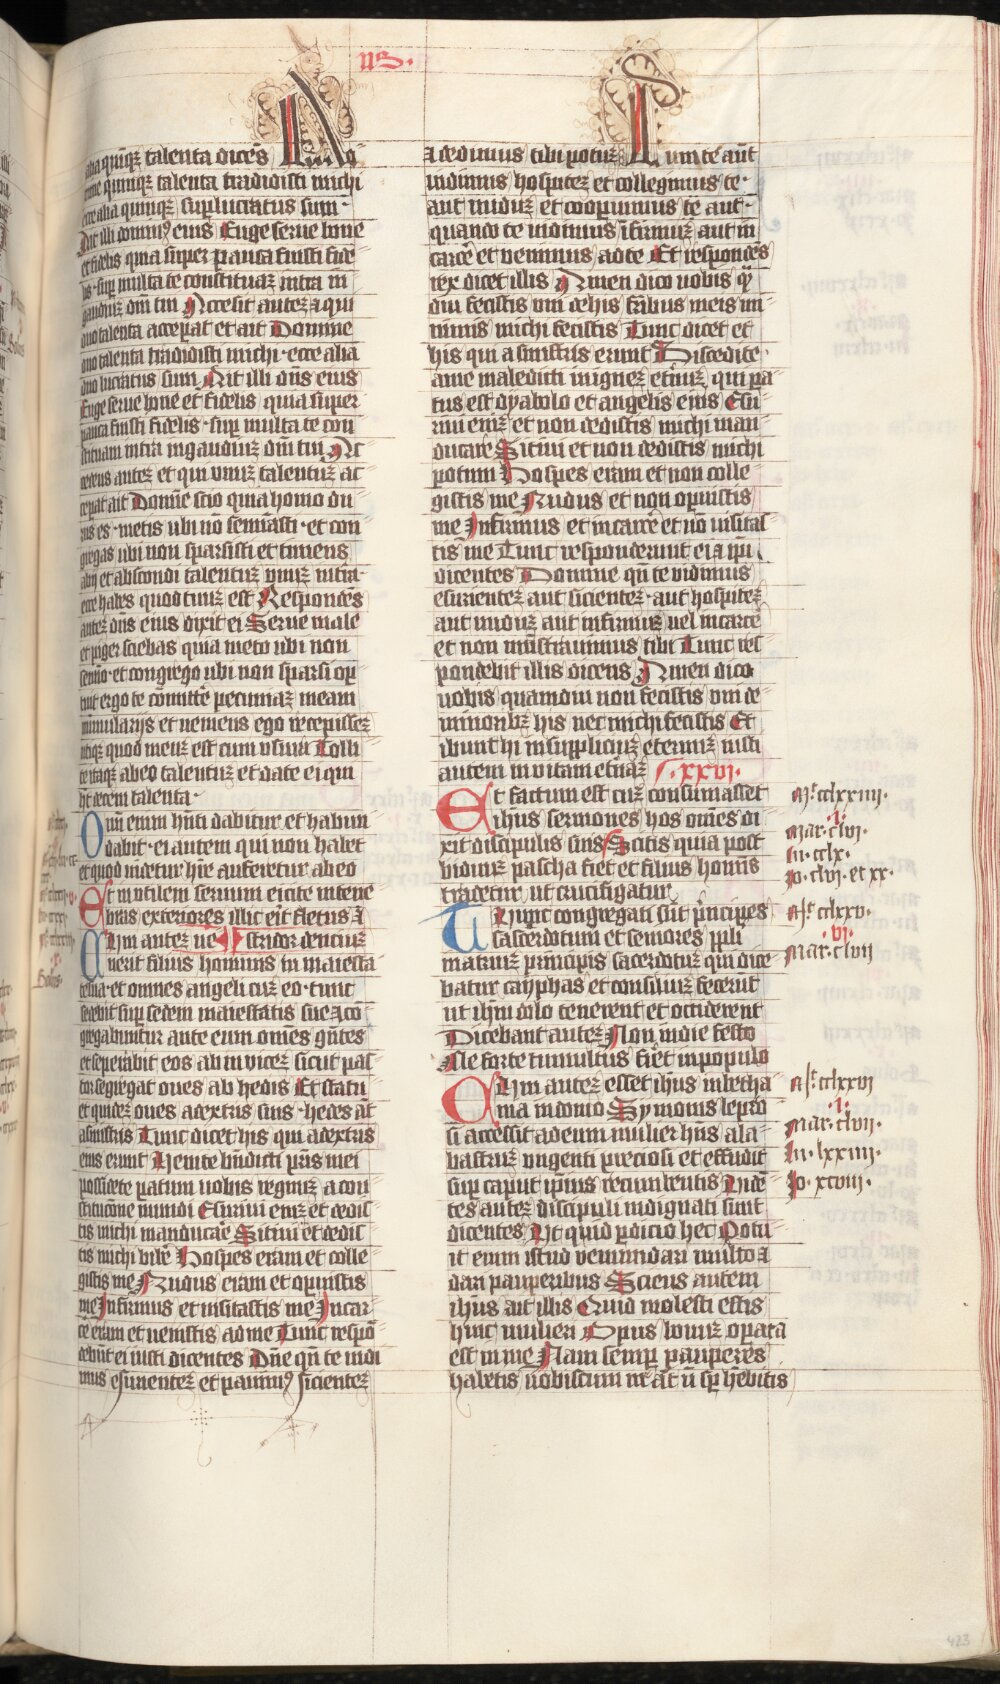 us.
alia quīqȝ talenta dicēs Dn̄o
me quinqȝ talenta tradidisti michi
ecce alia quinqȝ suꝑlucratus sum·
Ait illi domin⁹ eius Euge serue bone
et fidelis quia super pauca fuisti fide
lis· suꝑ multa te constituaȝ intra in
gaudiuȝ dn̄i tui Accessit auteȝ ⁊ qui
duo talenta acceꝑat et ait Domine
duo talenta tradidisti michi· ecce alia
duo lucratus sum Ait illi dn̄s eius
Euge serue bone et fidelis quia super
pauca fuisti fidelis· suꝑ multa te con
stituam intra in gaudiuȝ dn̄i tui Ac
cedens auteȝ et qui vnuȝ talentuȝ ac
ceꝑat ait Domīe scio quia homo du
rus es· metis ubi nō seminasti· et con
gregas ubi non sparsisti et timens
abij et abscondi talentuȝ tuuȝ in t̄ra·
ecce habes quod tuuȝ est Respondēs
auteȝ dn̄s eius dixit ei Serue male
et piger sciebas quia meto ubi non
semīo· et congrego ubi non sparsi op
tuit ergo te cōmittē pecuniaȝ meam
nummularijs et veniens ego recepisseȝ
utiqȝ quod meuȝ est cum vsura Tolli
te itaqȝ ab eo talentuȝ et date ei qui
ht̄ decem talenta·
Omi enim hn̄ti dabitur et habun
dabit· ei autem qui non habet
et quod videtur hr̄e auferetur ab eo
Et inutilem seruum eicite in tene
bras exteriores illic erit fletus ⁊
stridor denciuȝ
Cum auteȝ ve
nerit filius hominis in maiesta
te sua· et omnes angeli cuȝ eo· tunc
sedebit suꝑ sedem maiestatis sue ⁊ cō
gregabuntur ante eum om̄es gn̄tes
et seꝑabit eos ab inuiceȝ sicut pas
tor segregat oues ab hedis Et statu
et quideȝ oues a dextris suis· hedos āt
a sinistris Tunc dicet his qui a dextris
eius erunt Venite bn̄dicti pr̄is mei
possidete paratum uobis regnuȝ a con
stitucione mundi Esuriui eniȝ et dedis
tis michi manducare Sitiui et dedis
tis michi bibē Hospes eram et colle
gistis me Nudus eram et oꝑuistis
me Infirmus et visitastis me In car
cē eram et uenistis ad me Tunc respō
debūt ei iusti dicentes Dn̄e qn̄ te uidi
mus esurienteȝ et pauim⁹ sicienteȝ
⁊ dedimus tibi potuȝ Quādo autē te
uidimus hospiteȝ et collegimus te·
aut nuduȝ et cooꝑuimus te aut·
quando te uidimus īfirmuȝ aut in
carcē et venimus ad te Et respondēs
rex dicet illis Amen dico vobis qͣ
diu fecistis uni de his fr̄ibus meis mi
nimis michi fecistis Tunc dicet et
his qui a sinistris erunt Discedite·
a me maledicti in igneȝ et̄nuȝ, qui pa
tus est dyabolo et angelis eius Esu
riui eniȝ et non dedistis michi man
ducare Sitiui et non dedistis michi
potum Hospes eram et non colle
gistis me Nudus et non oꝑuistis
me Infirmus et in carcē et nō uisitas
tis me Tunc respondebunt ei ⁊ ip̄i
dicentes Domine qn̄ te vidimus
esurienteȝ aut sicienteȝ· aut hospiteȝ
aut nuduȝ aut infirmuȝ uel in carcē
et non ministrauimus tibi Tunc res
pondebit illis dicens Amen dico
uobis quamdiu non fecistis uni de
minoribȝ his nec michi fecistis Et
ibunt hi in suppliciuȝ eternuȝ iusti
autem in vitam et̄naȝ ·xxvi·
Et factum est cuȝ consumasset
ihūs sermones hos om̄es di
xit discipulis suis Scitis quia post
biduuȝ pascha fiet et filius hoīnis
tradetur ut crucifigatur
Tunc congregati sūt prīcipes
sacerdotum et seniores pp̄li
in atriuȝ principis sacerdotuȝ qui dice
batur cayphas et consiliuȝ fecerūt
ut ihm̄ dolo tenerent et occiderent
Dicebant auteȝ Non in die festo
Ne forte tumultus fiēt in populo
Cum auteȝ esset ihūs in betha
nia in domo Symonis lepro
si accessit ad eum mulier hn̄s ala
bastruȝ ungenti preciosi et effudit
suꝑ caput ip̄ius recumbentis Vidē
tes auteȝ discipuli indignati sunt
dicentes Vt quid ꝑdicio hec Potu
it enim istud venumdari multo ⁊
dari pauperibus Sciens autem
ihūs ait illis Quid molesti estis
huic mulieri Opus bonuȝ oꝑata
est in me Nam semꝑ pauperes
habetis uobiscum me āt n̄ sꝑ hēbitis
Mͭ· cclxxiiij·
·i·
Mar· clvj·
lu· cclx·
Jo· clvj· et xx·
Mͭ· cclxxv·
·vi·
Mar· clvij
Mͭ· cclxxvj
·i·
Mar· clvij·
lu· lxxiiij·
Jo· xcviij·
423